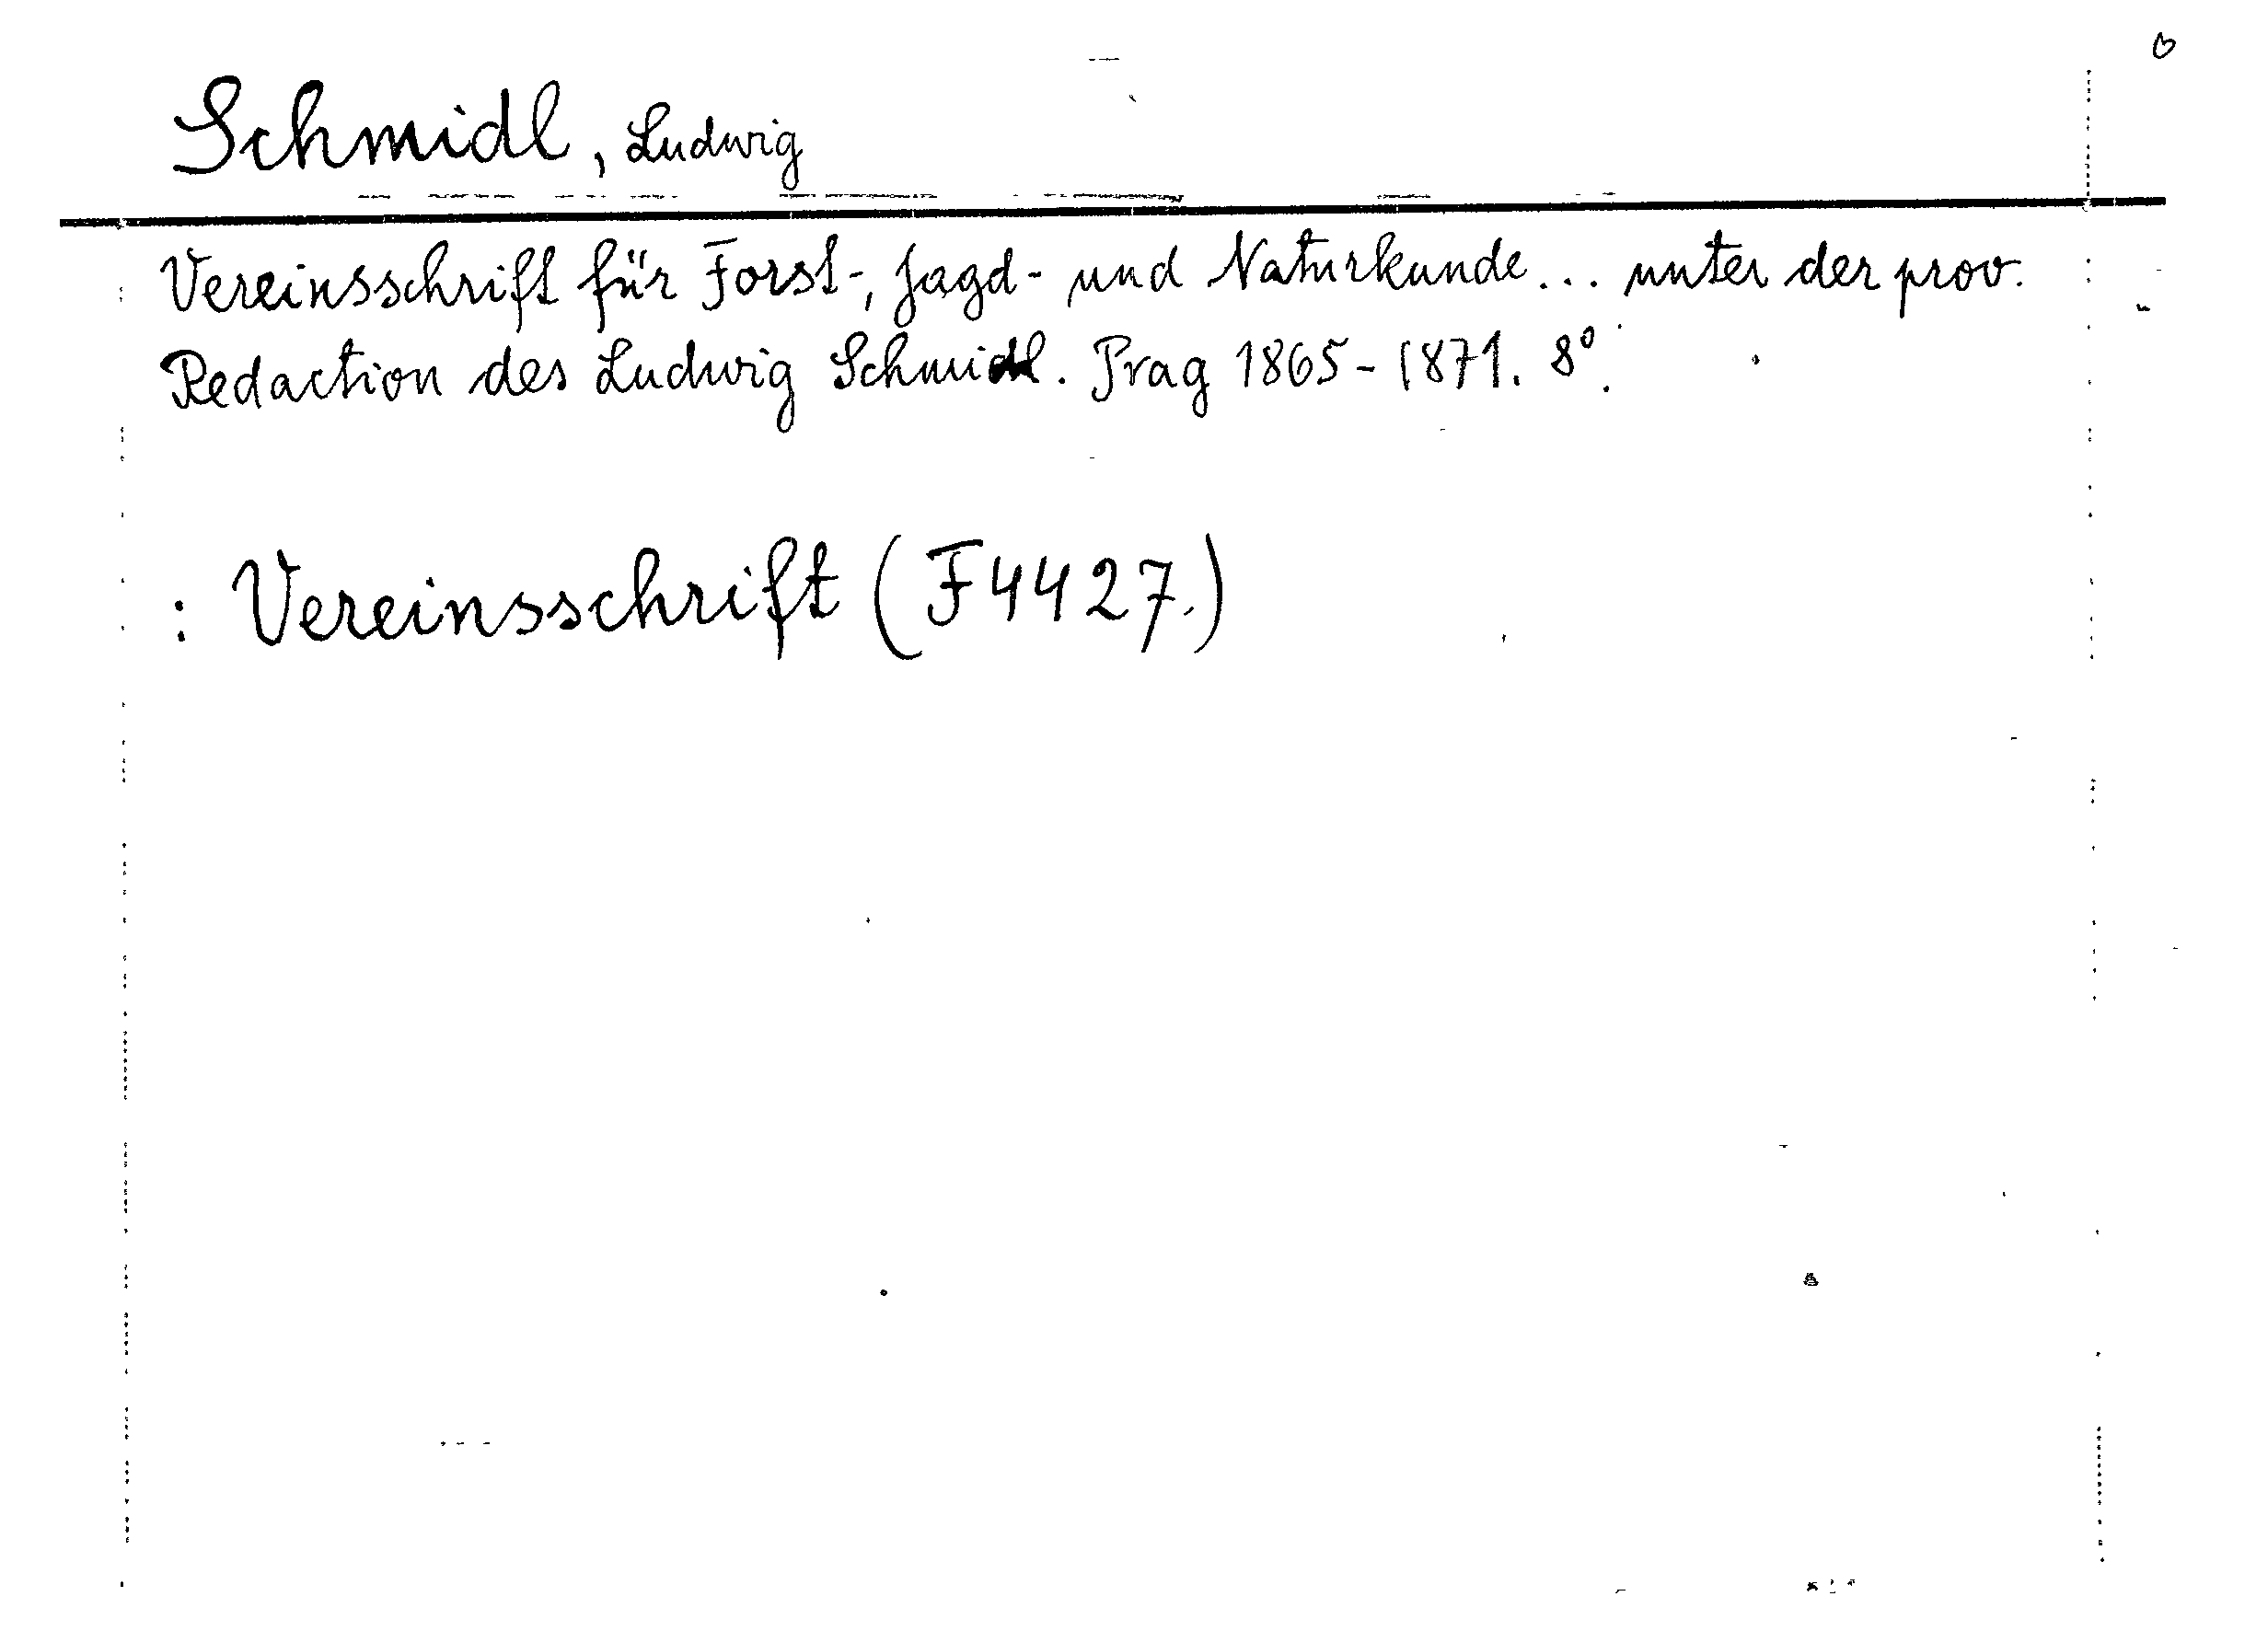 Schmidl, Ludwig
Vereinsschrift für Forst-, Jagd- und Naturkunde... unter der prov.
Redaction des Ludwig Schmidl. Prag 1865-1871. 8°.
: Vereinsschrift (F4427.)